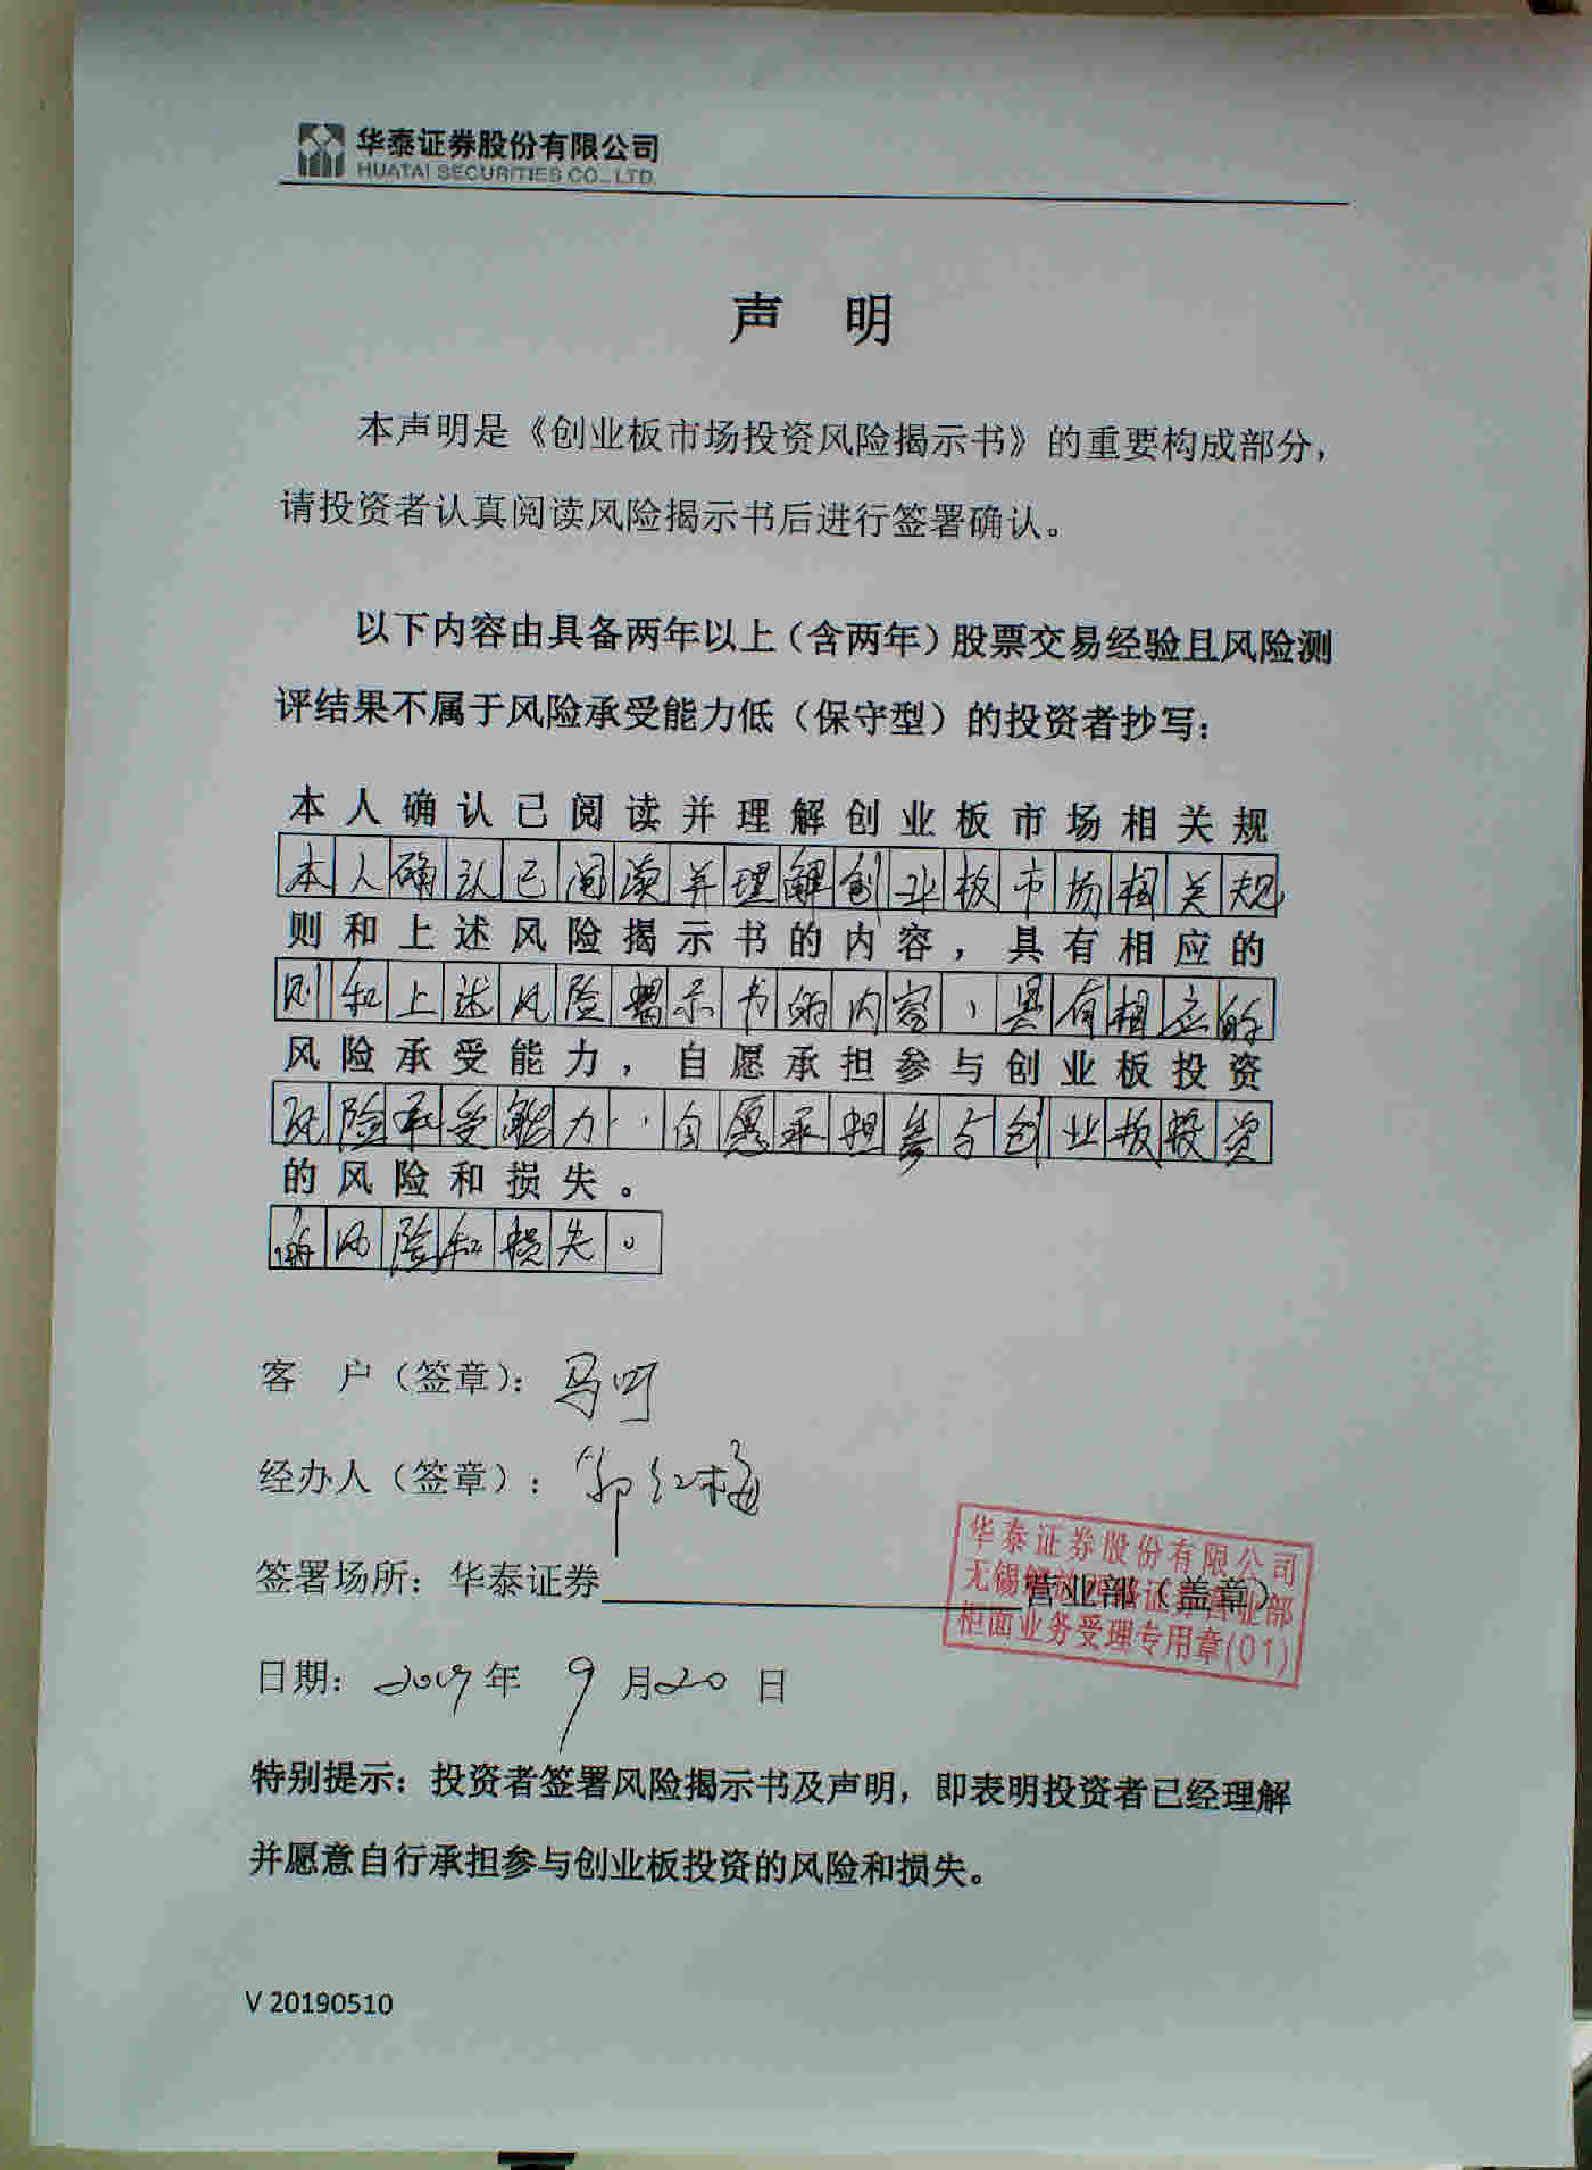 华泰证券股份有限公司
HUATAI SECURITIES CO., LTD.
声 明
本声明是《创业板市场投资风险揭示书》的重要构成部分，
请投资者认真阅读风险揭示书后进行签署确认。
以下内容由具备两年以上（含两年）股票交易经验且风险测
评结果不属于风险承受能力低（保守型）的投资者抄写：
本人确认已阅读并理解创业板市场相关规
本人确认已阅读并理解创业板市场相关规
则和上述风险揭示书的内容，具有相应的
则和上述风险揭示书的内容，具有相应的
风险承受能力，自愿承担参与创业板投资
风险承受能力，自愿承担参与创业板投资
的风险和损失。
的风险和损失。
客 户（签章）：马
经办人（签章）：郭红梅
签署场所：华泰证券 营业部（盖章）
华泰证券股份有限公司
无锡 证券营业部
柜面业务受理专用章(01)
日期：2019年 9 月20 日
特别提示：投资者签署风险揭示书及声明，即表明投资者已经理解
并愿意自行承担参与创业板投资的风险和损失。
V 20190510